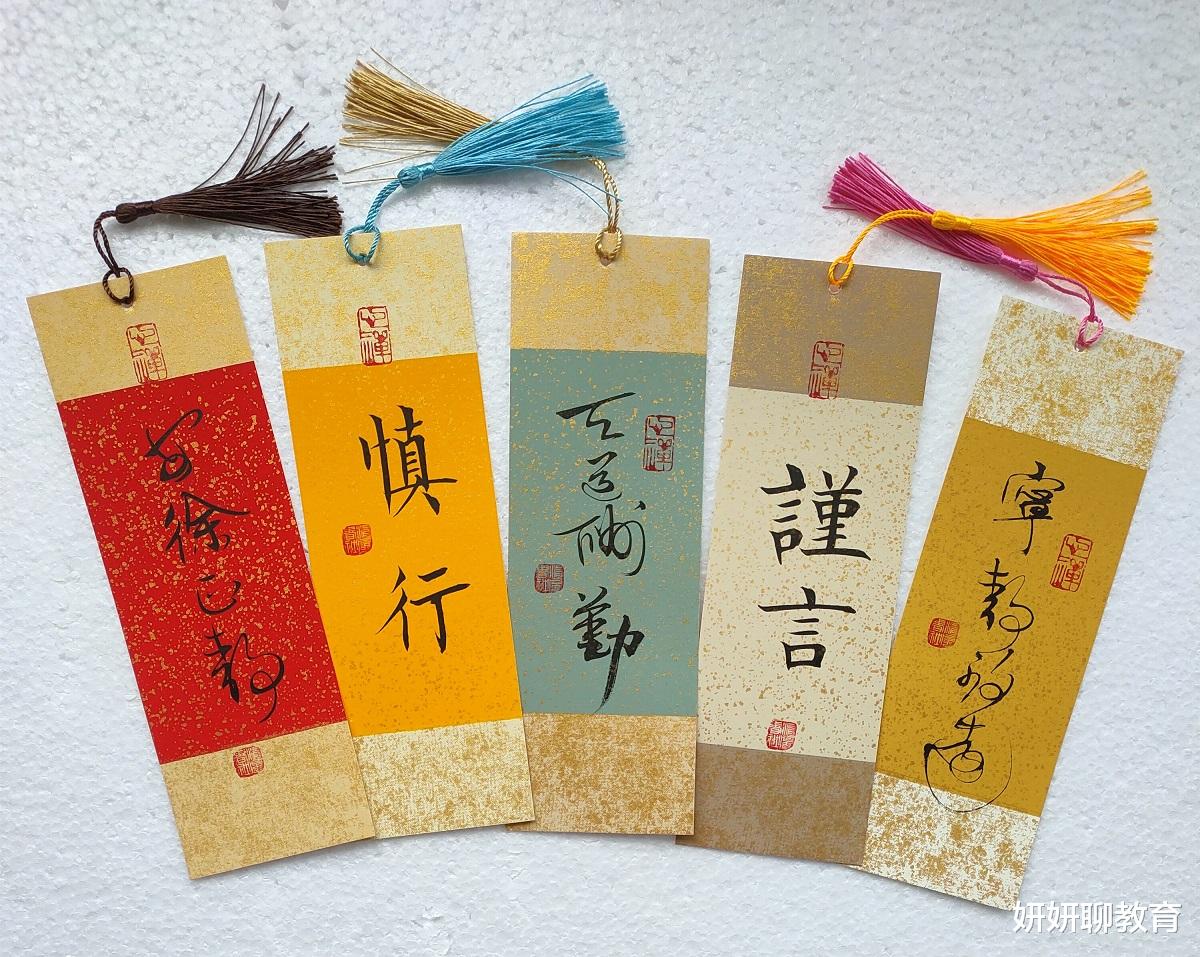 安徐正静
慎行
天道酬勤
謹言
寧静致遠
妍妍聊教育